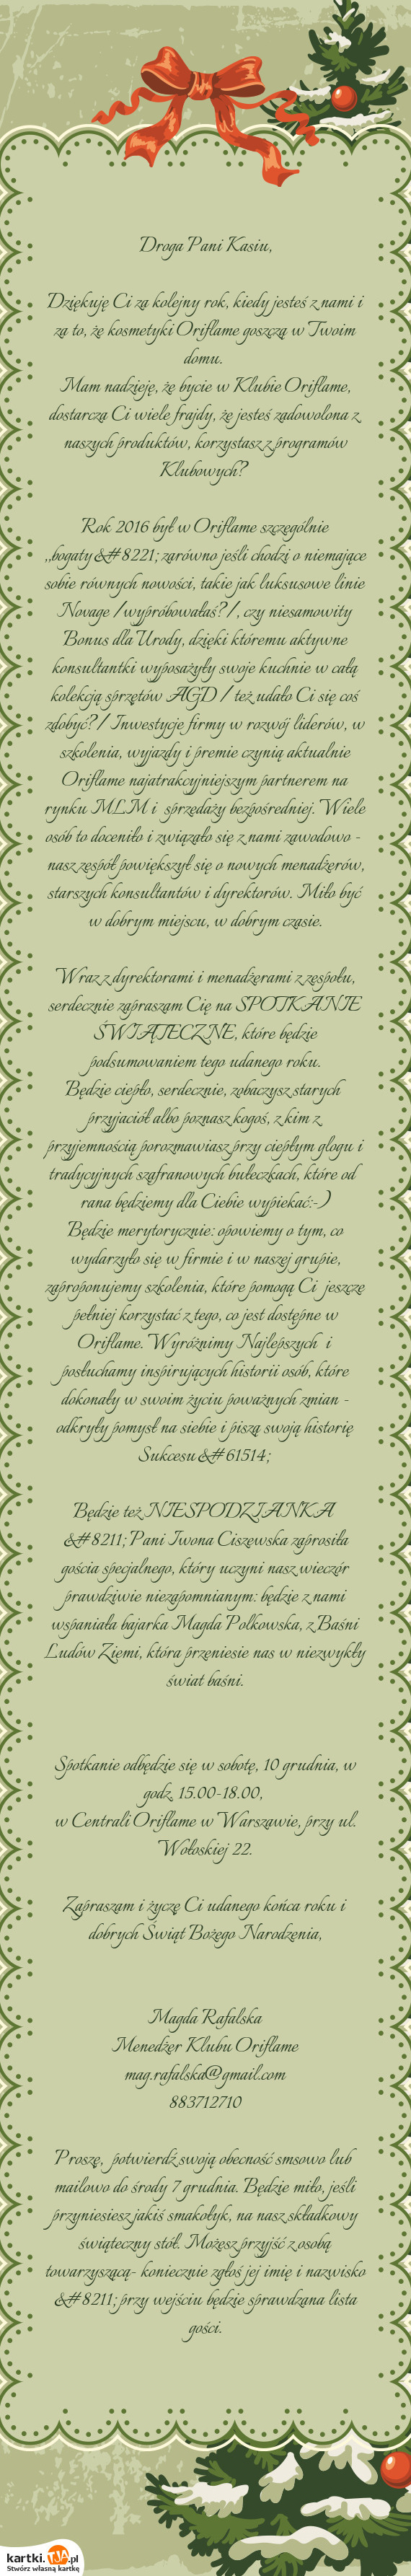 Droga Pani Kasiu,
Dziękuję Ci za kolejny rok, kiedy jesteś z nami i
za to, że kosmetyki Oriflame goszczą w Twoim
domu.
Mam nadzieję, że bycie w Klubie Oriflame,
dostarcza Ci wiele frajdy, że jesteś zadowolona z
naszych produktów, korzystasz z programów
Klubowych?
Rok 2016 był w Oriflame szczególnie
,,bogaty&#8221; zarówno jeśli chodzi o niemające
sobie równych nowości, takie jak luksusowe linie
Novage /wypróbowałaś?/, czy niesamowity
Bonus dla Urody, dzięki któremu aktywne
konsultantki wyposażyły swoje kuchnie w całą
kolekcją sprzętów AGD / też udało Ci się coś
zdobyć?/ Inwestycje firmy w rozwój liderów, w
szkolenia, wyjazdy i premie czynią aktualnie
Oriflame najatrakcyjniejszym partnerem na
rynku MLM i  sprzedaży bezpośredniej. Wiele
osób to doceniło i związało się z nami zawodowo -
nasz zespół powiększył się o nowych menadżerów,
starszych konsultantów i dyrektorów. Miło być
w dobrym miejscu, w dobrym czasie.
Wraz z dyrektorami i menadżerami z zespołu,
serdecznie zapraszam Cię na SPOTKANIE
ŚWIĄTECZNE, które będzie
podsumowaniem tego udanego roku.
Będzie ciepło, serdecznie, zobaczysz starych
przyjaciół albo poznasz kogoś, z kim z
przyjemnością porozmawiasz przy ciepłym glogu i
tradycyjnych szafranowych bułeczkach, które od
rana będziemy dla Ciebie wypiekać:-)
Będzie merytorycznie: opowiemy o tym, co
wydarzyło się w firmie i w naszej grupie,
zaproponujemy szkolenia, które pomogą Ci  jeszcze
pełniej korzystać z tego, co jest dostępne w
Oriflame. Wyróżnimy Najlepszych  i
posłuchamy inspirujących historii osób, które
dokonały w swoim życiu poważnych zmian -
odkryły pomysł na siebie i piszą swoją historię
Sukcesu &#61514;
Będzie też NIESPODZIANKA
&#8211; Pani Iwona Ciszewska zaprosiła
gościa specjalnego, który uczyni nasz wieczór
prawdziwie niezapomnianym: będzie z nami
wspaniała bajarka Magda Polkowska, z Baśni
Ludów Ziemi, która przeniesie nas w niezwykły
świat baśni.
Spotkanie odbędzie się w sobotę, 10 grudnia, w
godz. 15.00-18.00,
w Centrali Oriflame w Warszawie, przy ul.
Wołoskiej 22.
Zapraszam i życzę Ci udanego końca roku i
dobrych Świąt Bożego Narodzenia,
Magda Rafalska
Menedżer Klubu Oriflame
mag.rafalska@gmail.com
883712710
Proszę,  potwierdź swoją obecność smsowo lub
mailowo do środy 7 grudnia. Będzie miło, jeśli
przyniesiesz jakiś smakołyk, na nasz składkowy
świąteczny stół. Możesz przyjść z osobą
towarzyszącą- koniecznie zgłoś jej imię i nazwisko
&#8211; przy wejściu będzie sprawdzana lista
gości.
kartki.TJA.pl
Stwórz własną kartkę